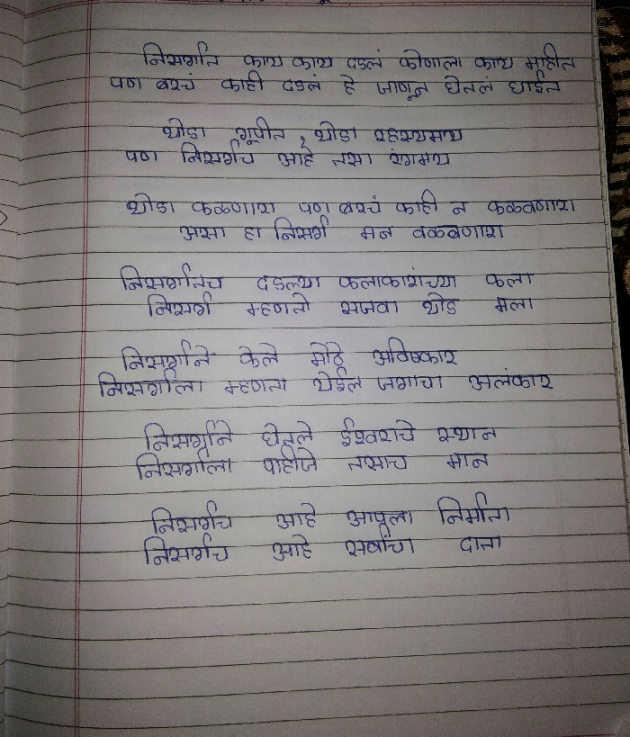 निसर्गात काय काय दडलं कोणाला काय माहीत
पण बरचं काही दडलं हे जाणून घेतलं पाईन
थोडा गूपीत, थोडा रहस्यमय
पण निसर्गच आहे तसा रंगमय
थोडा कळणारा पण बरचं काही न कळवणारा
असा हा निसर्ग मन वळवणारा
निसर्गातच दडल्या कलाकारांच्या कला
निसर्ग म्हणतो सजवा थोडं मला
निसर्गाने केले मोठे अविष्कार
निसर्गाला म्हणता येईल जगाचा अलंकार
निसर्गाने घेतले ईश्वराचे स्थान
निसर्गाला पाहीजे तसाच मान
निसर्गच आहे आपला निर्माता
निसर्गच आहे सर्वांचा दाता